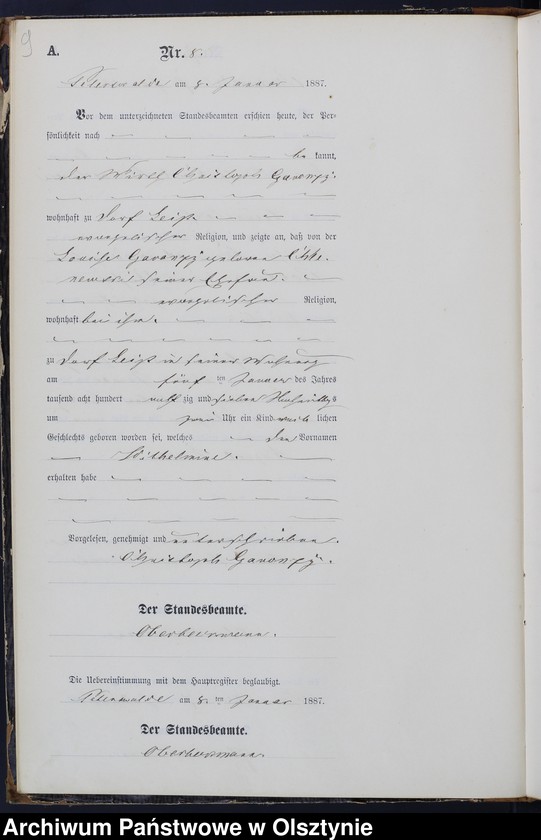 9
A. Nr. 8.
am 8. Januar 1887.
Vor dem unterzeichneten Standesbeamten erschien heute, der Per-
sönlichkeit nach
be kannt,
der Wirth Christoph
wohnhaft zu Dorf
evangelischer Religion, und zeigte an, daß von der
Louise geborene
seiner Ehefrau
evangelischer Religion,
wohnhaft bei ihm
zu Dorf in seiner Wohnung
am fünf ten Januar des Jahres
tausend acht hundert acht zig und sieben Nachmittags
um zwei Uhr ein Kind weib lichen
Geschlechts geboren worden sei, welches den Vornamen
Wilhelmine.
erhalten habe
Vorgelesen, genehmigt und unterschrieben.
Christoph
Der Standesbeamte.
Die Uebereinstimmung mit dem Hauptregister beglaubigt.
am 8. ten Januar 1887.
Der Standesbeamte.
Archiwum Państwowe w Olsztynie